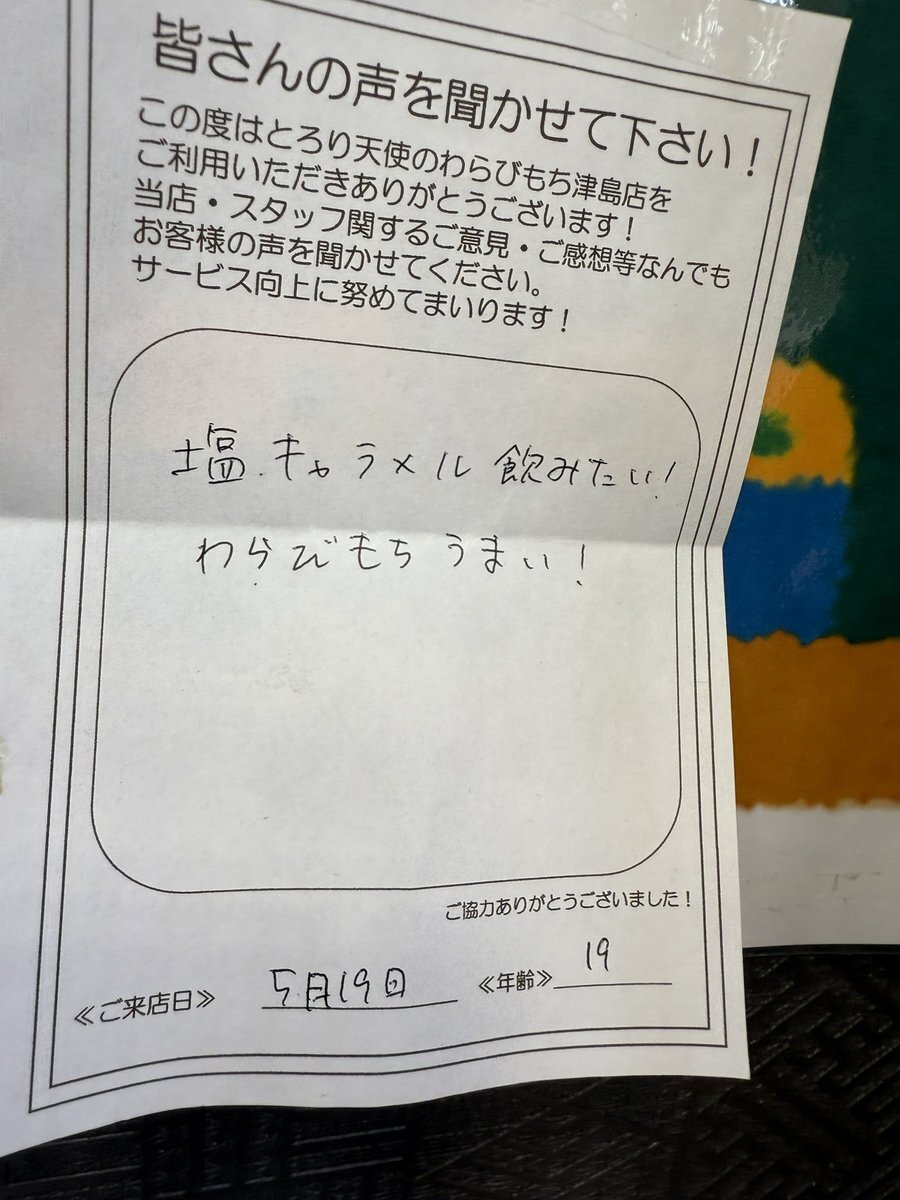 皆さんの声を聞かせて下さい！
この度はとろり天使のわらびもち津島店を
ご利用いただきありがとうございます！
当店・スタッフ関するご意見・ご感想等なんでも
お客様の声を聞かせてください。
サービス向上に努めてまいります！
塩キャラメル 飲みたい！
わらびもち うまい！
ご協力ありがとうございました！
≪ご来店日≫ 5月19日 ≪年齢≫ 19